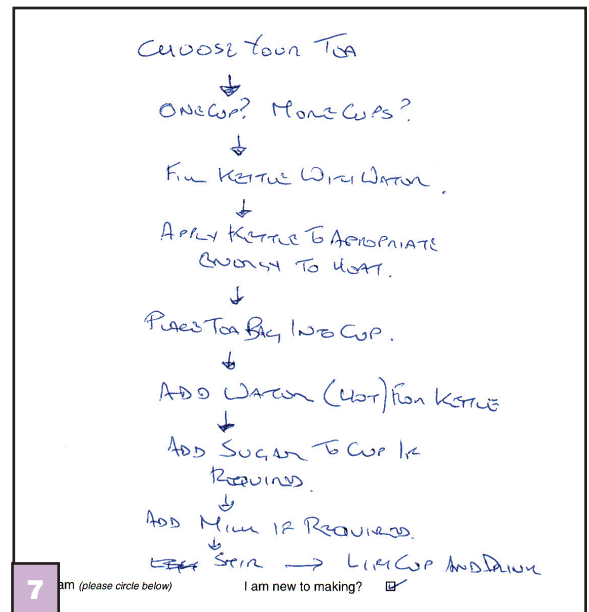 CHOOSE YOUR TEA
ONE CUP? MORE CUPS?
FILL KETTLE WITH WATER.
APPLY KETTLE TO APROPRIATE
ENERGY TO HEAT.
PLACE TEA BAG INTO CUP.
ADD WATER (HOT) FROM KETTLE
ADD SUGAR TO CUP IF
REQUIRED.
ADD MILK IF REQUIRED.
STIR → LIFT CUP AND DRINK
7 am (please circle below) I am new to making?